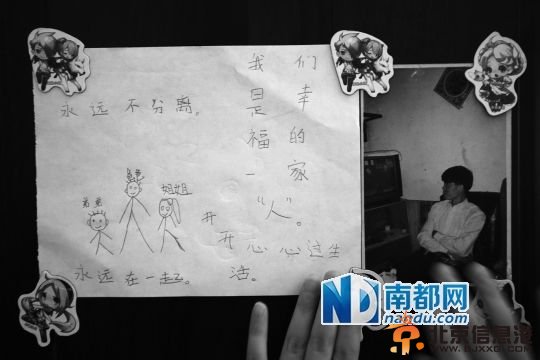 我们
是幸
福的
一家
“人”。
开
开心心这生
活。
永远不分离。
弟弟
姐姐
永远在一起。
ND南都网
nandu.com
北京信息港